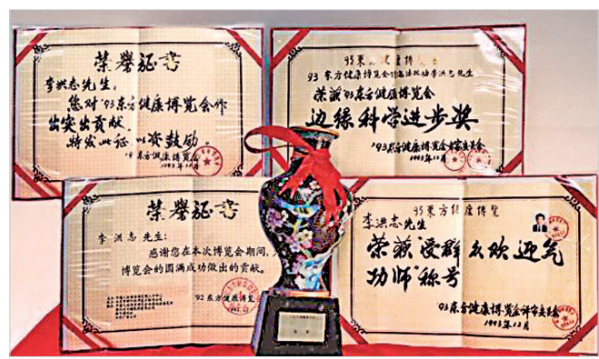 荣誉证书
李洪志先生:
您对'93东方健康博览会作
出突出贡献
特发此证 以资鼓励
'93东方健康博览会
1993年12月
93东方健康博览会
李洪志先生
荣获'93东方健康博览会
边缘科学进步奖
'93东方健康博览会评审委员会
1993年12月
荣誉证书
李洪志先生:
感谢您在本次博览会期间,
博览会的圆满成功做出的贡献。
'92东方健康博览
93东方健康博览
李洪志先生
荣获"受群众欢迎气
功师"称号
'93东方健康博览会评审委员会
1993年12月